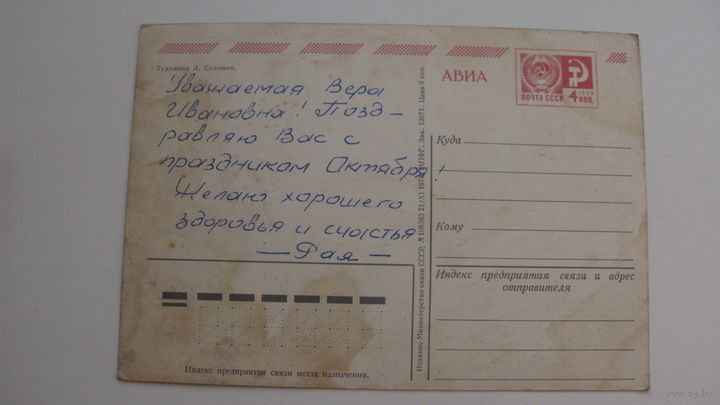 Художник А. Соловьев.
Уважаемая Вера
Ивановна! Позд-
равляю Вас с
праздником Октября!
Желаю хорошего
здоровья и счастья
— Рая —
АВИА
ПОЧТА СССР
4 коп.
Куда
Кому
Индекс предприятия связи и адрес
отправителя
Издание Министерства связи СССР.
Цена 6 коп.
Индекс предприятия связи места назначения.
www.ay.by